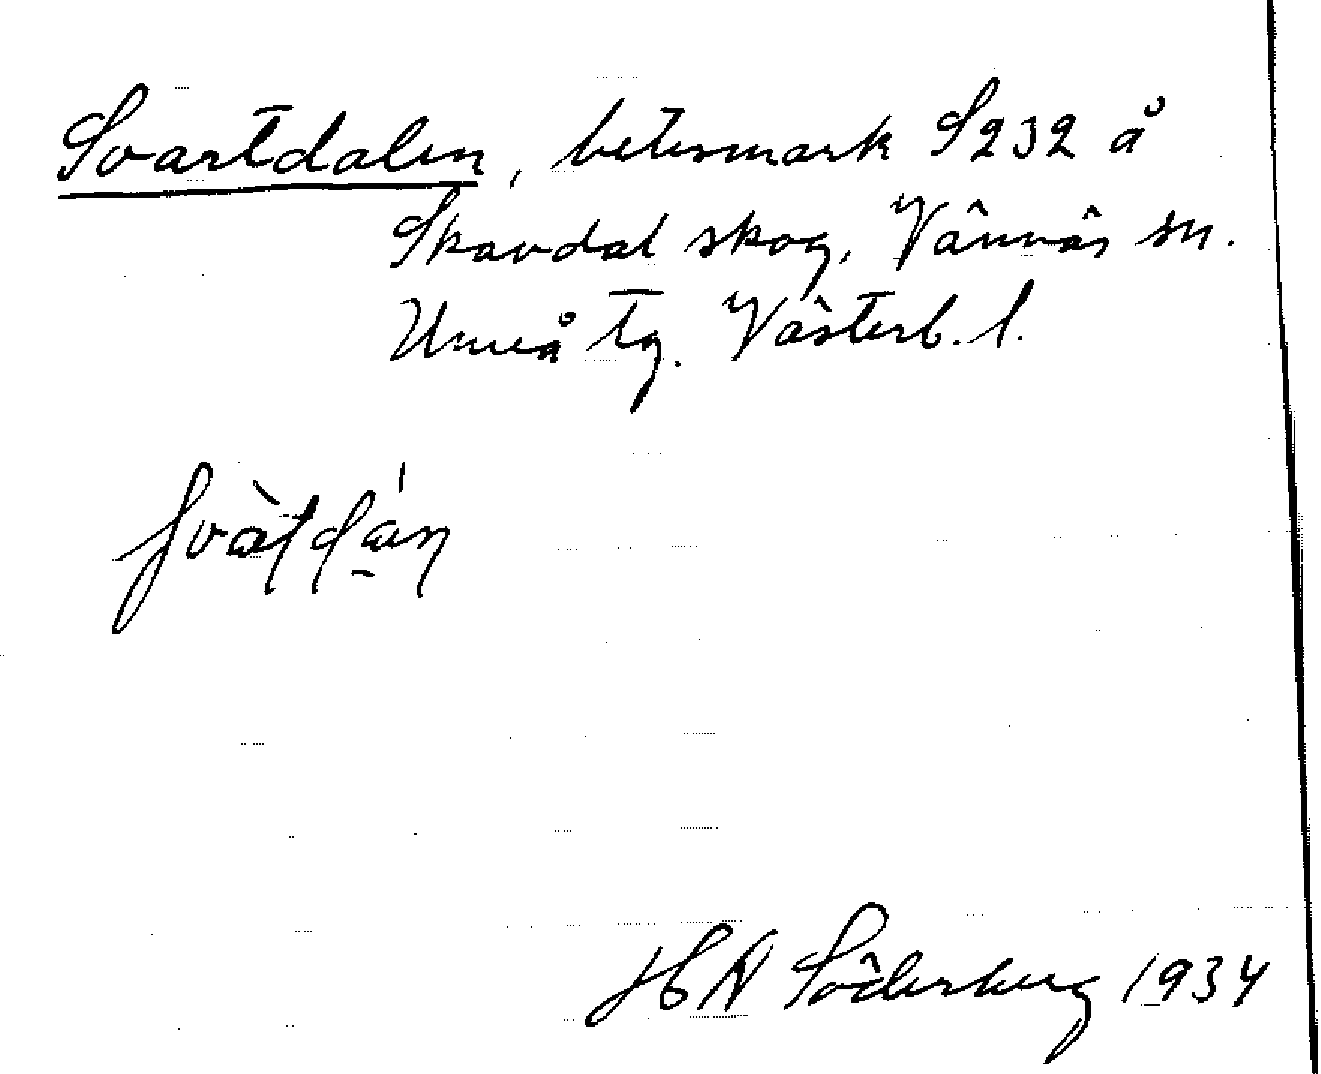 Svartdalen, betesmark S232 å
Skavdal skog, Vännäs sn.
Umeå tg. Västerb. l.
HN Söderberg 1934